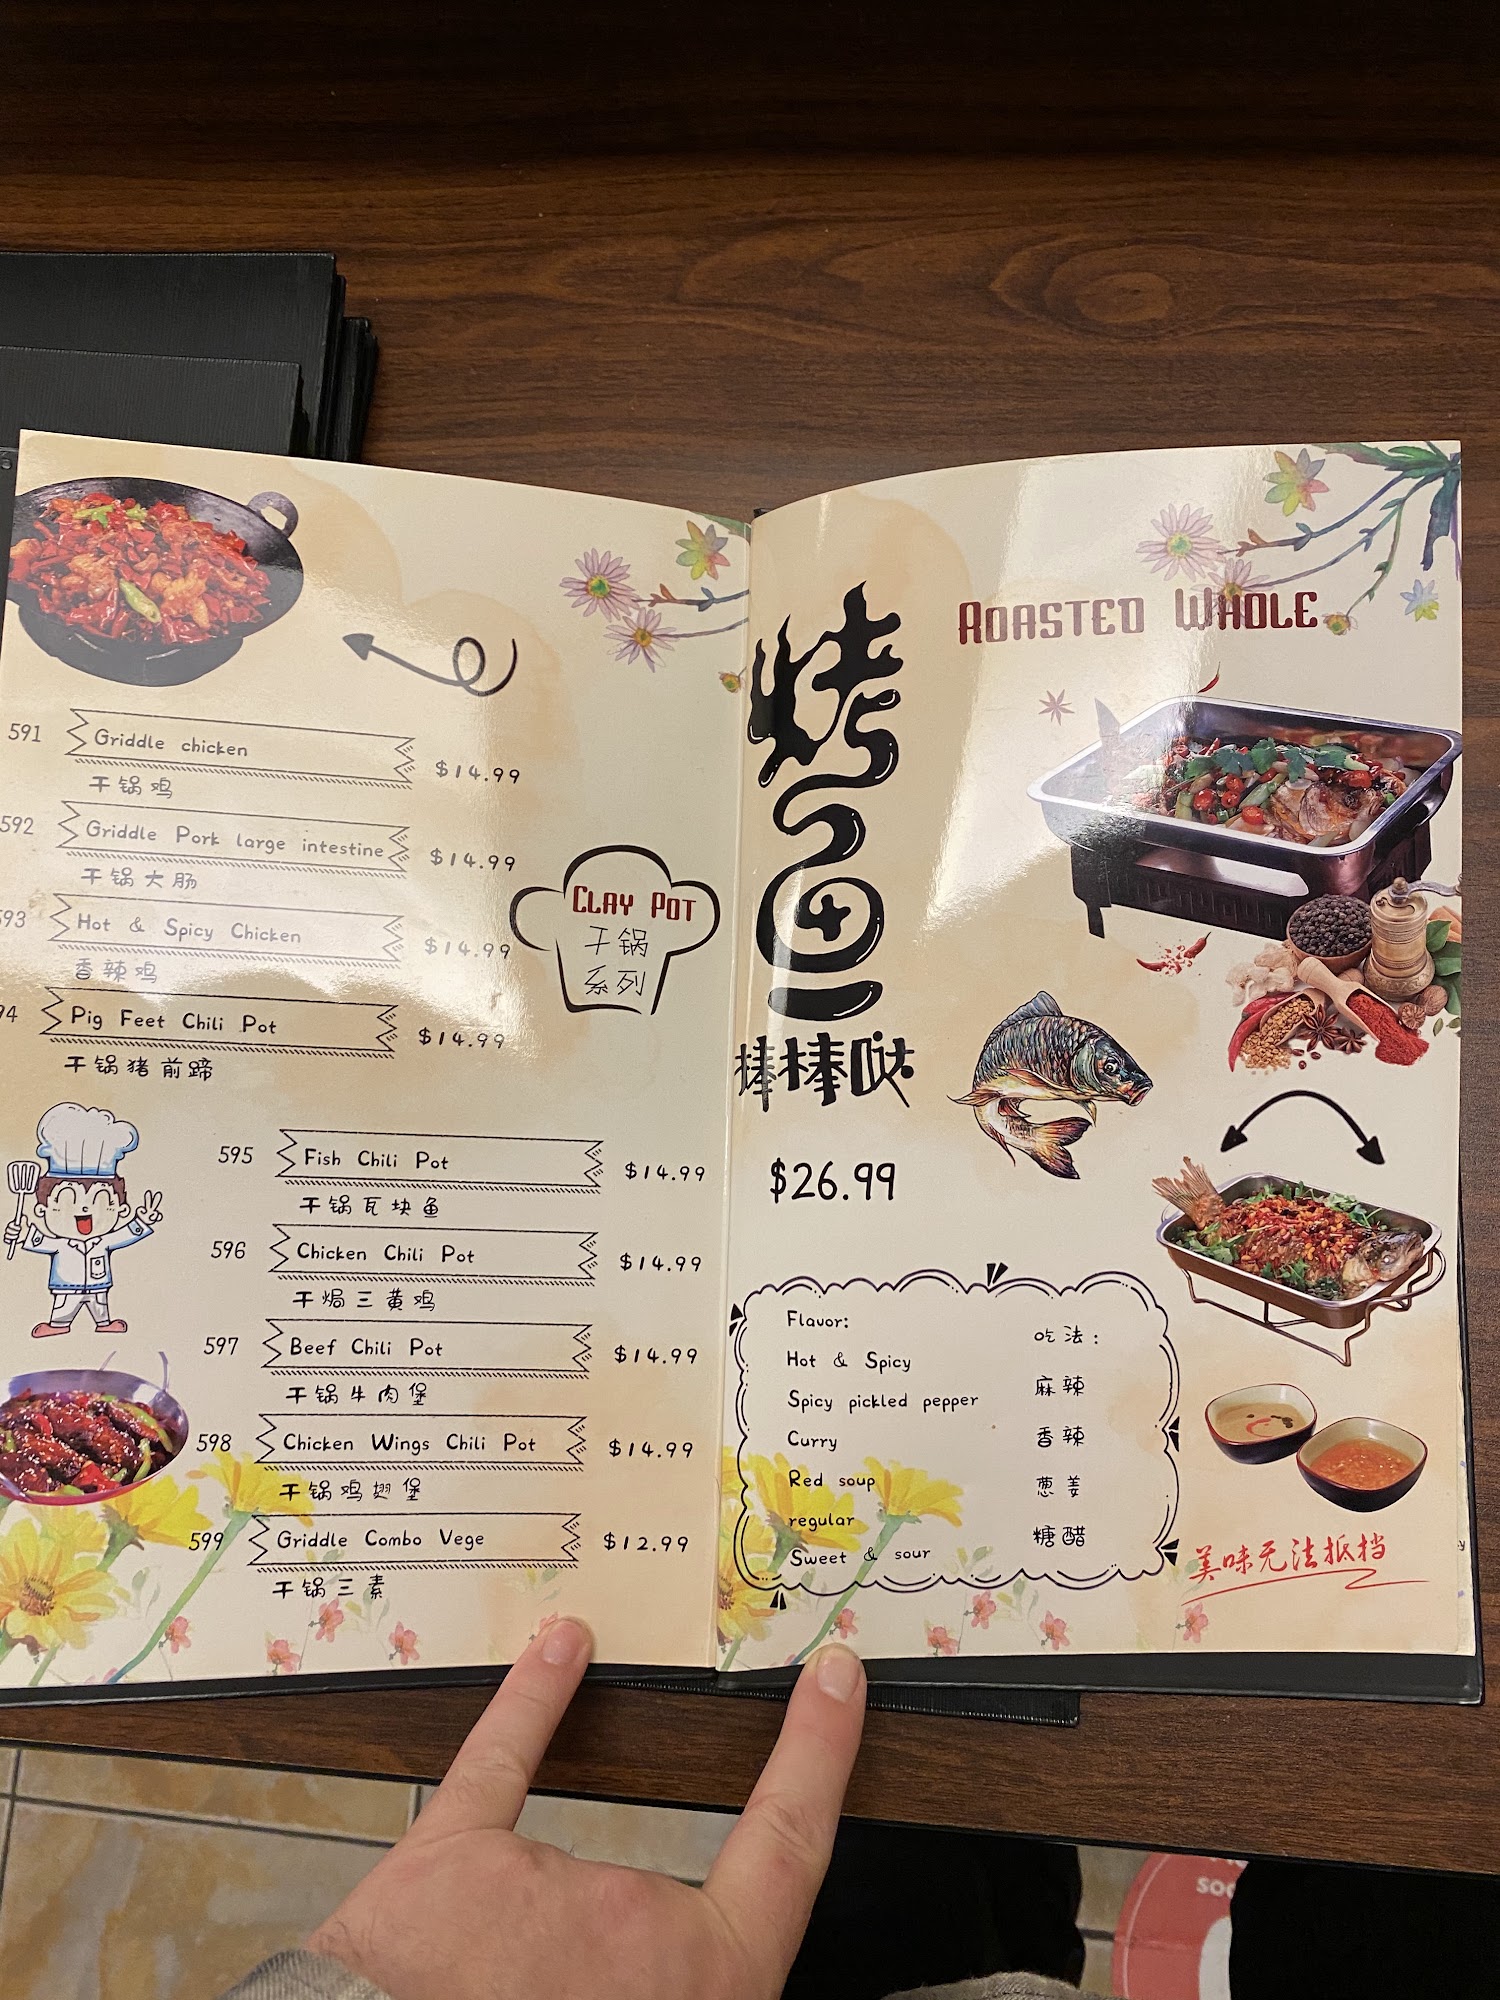 591 Griddle chicken $14.99
干锅鸡
592 Griddle Pork large intestine $14.99
干锅大肠
593 Hot & Spicy Chicken $14.99
香辣鸡
94 Pig Feet Chili Pot $14.99
干锅猪前蹄
CLAY POT
干锅
系列
595 Fish Chili Pot $14.99
干锅瓦块鱼
596 Chicken Chili Pot $14.99
干焗三黄鸡
597 Beef Chili Pot $14.99
干锅牛肉堡
598 Chicken Wings Chili Pot $14.99
干锅鸡翅堡
599 Griddle Combo Vege $12.99
干锅三素
ROASTED WHOLE
烤鱼
棒棒哒
$26.99
Flavor:
Hot & Spicy
Spicy pickled pepper
Curry
Red soup
regular
Sweet & sour
吃法:
麻辣
香辣
葱姜
糖醋
美味无法抵挡